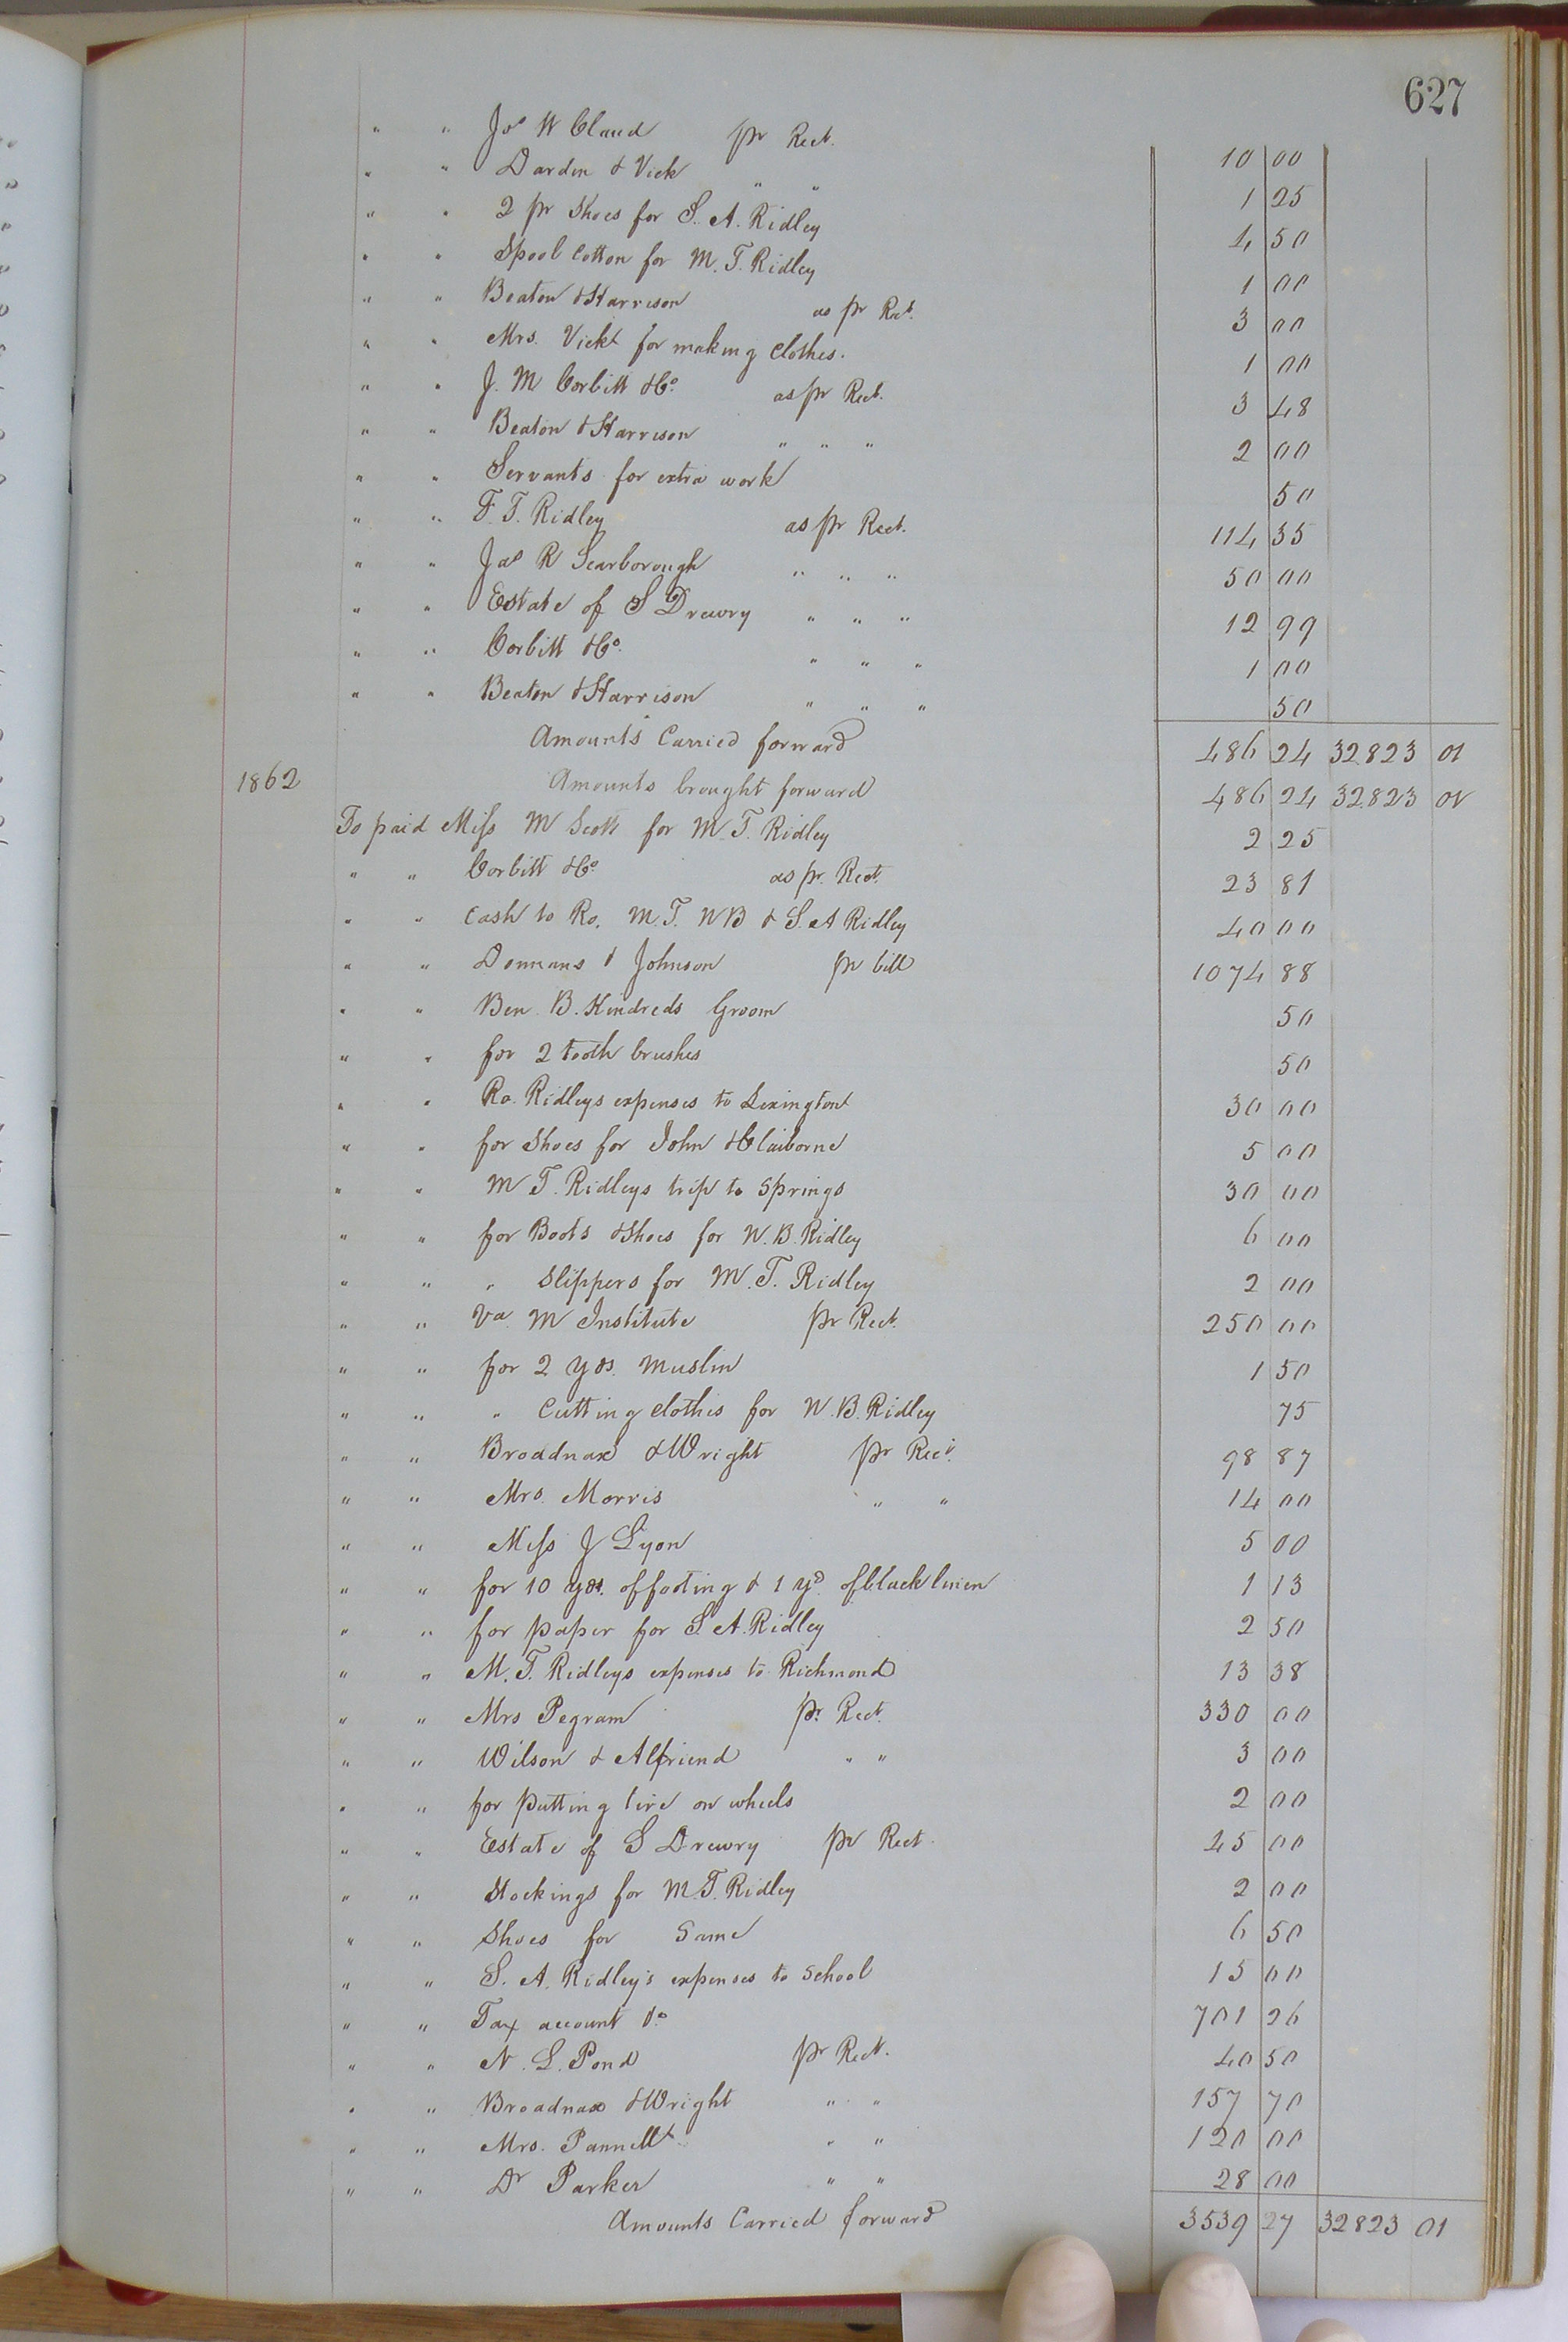 627
" " Jos W Claud pr Rect. 10 00
" " Darden & Vick " " 1 25
" " 2 pr Shoes for S. A. Ridley 4 50
" " Spool Cotton for M. T. Ridley 1 00
" " Beaton & Harrison as pr Rect. 3 00
" " Mrs. Vick for making Clothes. 1 00
" " J. M Corbitt & Co. as pr Rect. 3 48
" " Beaton & Harrison " " " 2 00
" " Servants for extra work 50
" " F. T. Ridley as pr Rect. 114 35
" " Jas R Scarborough " " " 50 00
" " Estate of S Drewry " " " 12 99
" " Corbitt & Co. " " " 1 00
" " Beaton & Harrison " " " 50
Amounts Carried forward 486 24 32823 01
1862 Amounts brought forward 486 24 32823 01
To paid Miss M Scott for M. T. Ridley 2 25
" " Corbitt & Co. as pr. Rect. 23 81
" " Cash to Ro. M. T. WB & S. A Ridley 40 00
" " Donnans & Johnson pr bill 1074 88
" " Ben. B. Kindreds Groom 50
" " for 2 tooth brushes 50
" " Ro. Ridleys expenses to Lexington 30 00
" " for Shoes for John & Claiborne 5 00
" " M T. Ridleys trip to Springs 30 00
" " for Boots & Shoes for W. B. Ridley 6 00
" " " Slippers for M. T. Ridley 2 00
" " Va M Institute pr Rect. 250 00
" " for 2 yds. Muslin 1 50
" " " Cutting Clothes for W. B. Ridley 75
" " Broadnax & Wright pr Rect. 98 87
" " Mrs. Morris " " 14 00
" " Miss J Lyon 5 00
" " for 10 yds. of footing & 1 yd. of black linen 1 13
" " for paper for S. A. Ridley 2 50
" " M. T. Ridleys expenses to Richmond 13 38
" " Mrs Pegram pr. Rect. 330 00
" " Wilson & Alfriend " " 3 00
" " for putting tire on wheels 2 00
" " Estate of S Drewry pr Rect. 45 00
" " Stockings for M. T. Ridley 2 00
" " Shoes for Same 6 50
" " S. A. Ridley's expenses to School 15 00
" " Tax account 701 26
" " N. L. Pond pr Rect. 40 50
" " Broadnax & Wright " " 157 70
" " Mrs. Pannell " " 120 00
" " Dr Parker " " 28 00
Amounts Carried forward 3539 27 32823 01